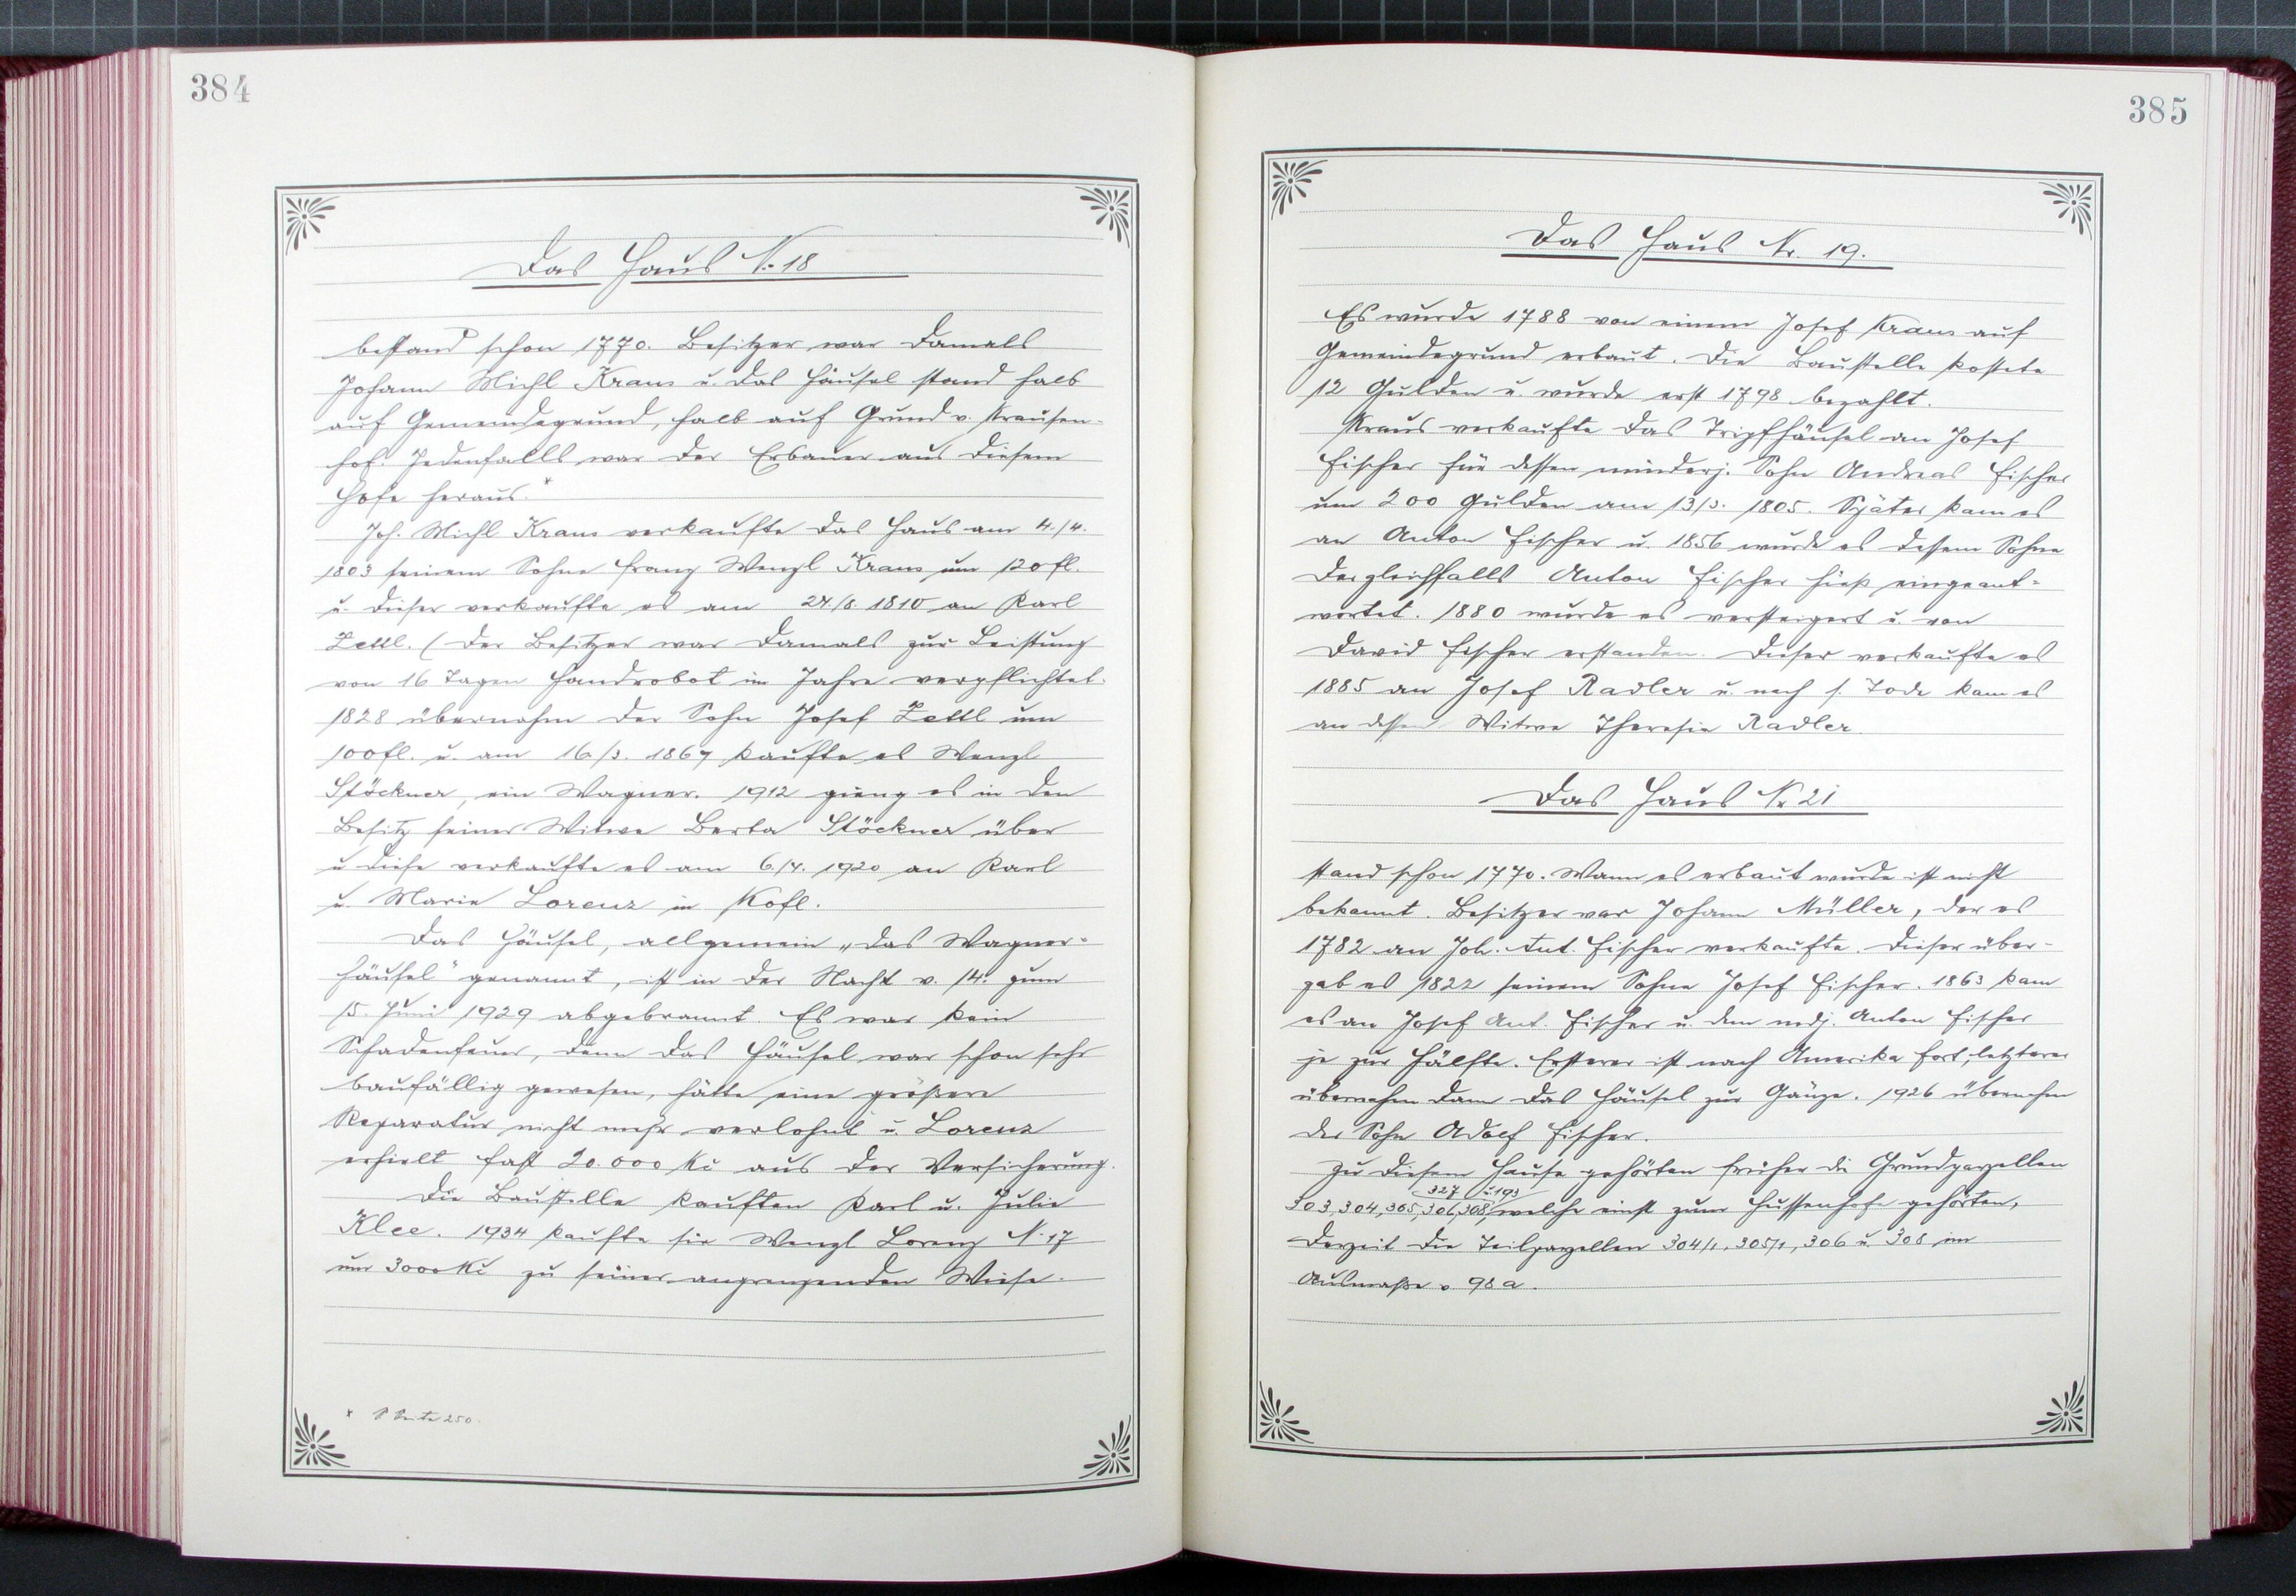 384
Das Haus N. 18
bestand schon 1770. Besitzer war damals
Johann Michl Kraus u. das Häusel stand halb
auf Gemeindegrund, halb auf Grund v. Krausen-
hof. Jedenfalls war der Erbauer aus diesem
Hofe heraus.*
Joh. Michl Kraus verkaufte das Haus am 4./4.
1803 seinem Sohne Franz Wenzl Kraus um 120 fl.
u. dieser verkaufte es am 24./8. 1810 an Karl
Zettl. (Der Besitzer war damals zur Leistung
von 16 Tagen Handrobot im Jahre verpflichtet.
1828 übernahm der Sohn Josef Zettl um
100 fl. u. am 16./3. 1867 kaufte es Wenzl
Stöckner, ein Wagner. 1912 gieng es in den
Besitz seiner Witwe Berta Stöckner über
u diese verkaufte es am 6./4. 1920 an Karl
u. Marie Lorenz in Kofl.
Das Häusel, allgemein „das Wagner-
häusel" genannt, ist in der Nacht v. 14. zum
15. Juni 1929 abgebrannt. Es war kein
Schadenfeuer, denn das Häusel war schon sehr
baufällig gewesen, hätte eine größere
Reparatur nicht mehr verlohnt u. Lorenz
erhielt fast 20.000 Kč aus der Versicherung.
Die Baustelle kauften Karl u. Julie
Klee. 1934 kaufte sie Wenzl Lorenz N. 17
um 3000 Kč zu seiner angrenzenden Wiese.
* S Seite 250.
385
Das Haus Nr. 19.
Es wurde 1788 von einem Josef Kraus auf
Gemeindegrund erbaut. Die Baustelle kostete
12 Gulden u. wurde erst 1798 bezahlt.
Kraus verkaufte das Tripfhäusel an Josef
Fischer für dessen minderj. Sohn Andreas Fischer
um 200 Gulden am 13/3. 1805. Später kam es
an Anton Fischer u. 1856 wurde es dessem Sohne
der gleichfalls Anton Fischer hieß eingeant-
wortet. 1880 wurde es versteigert u. von
David Fischer erstanden. Dieser verkaufte es
1885 an Josef Radler u. nach s. Tode kam es
an dessen Witwe Theresia Radler.
Das Haus N. 21
stand schon 1770. Wann es erbaut wurde ist nicht
bekannt. Besitzer war Johann Müller, der es
1782 an Joh. Ant. Fischer verkaufte. Dieser über-
gab es 1822 seinem Sohne Josef Fischer. 1863 kam
es an Josef Ant. Fischer u. dem mdj. Anton Fischer
je zur Hälfte. Ersterer ist nach Amerika fort, letzterer
übernahm dann das Häusel zur Gänze. 1926 übernahm
der Sohn Adolf Fischer.
Zu diesem Hause gehörten früher die Grundparzellen
327 u. 193
303, 304, 305, 306, 308, welche einst zum Hussenhofe gehörten,
derzeit die Teilparzellen 304/1, 305/1, 306 u. 308 im
Ausmaße v 98 a.